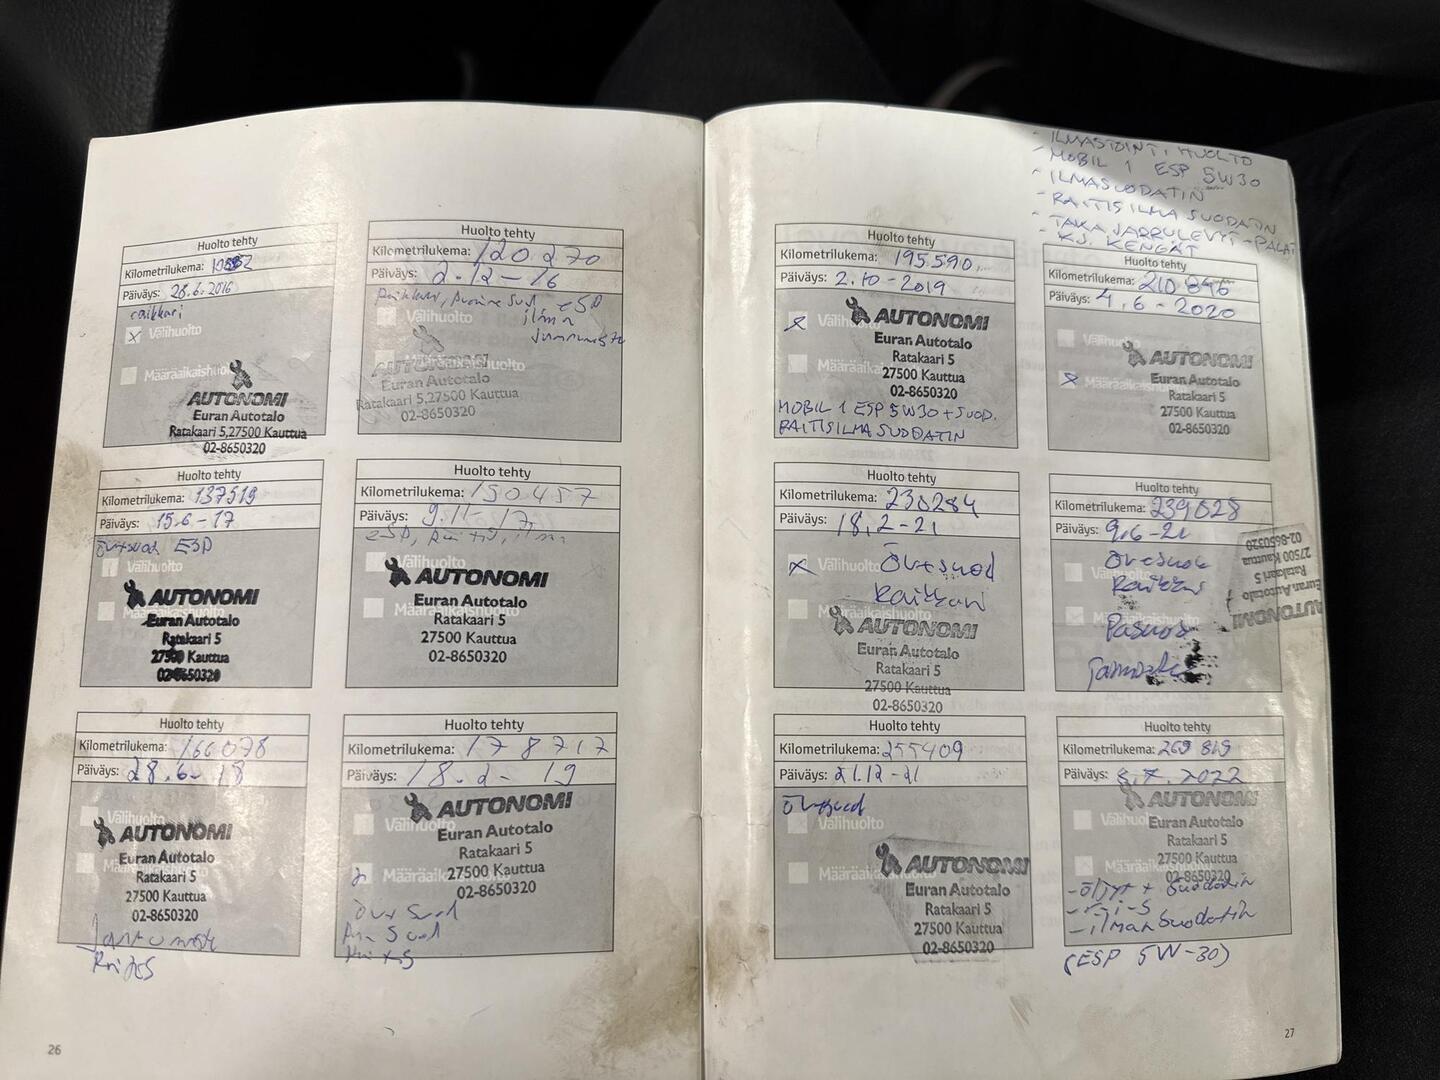 Huolto tehty
Kilometrilukema:
Päiväys: 28.6.2016
raikkari
Välihuolto
Määräaikaishuolto
AUTONOMI
Euran Autotalo
Ratakaari 5,27500 Kauttua
02-8650320
Huolto tehty
Kilometrilukema: 120270
Päiväys: 2.12-16
eSP
ilma
AUTONOMI
Euran Autotalo
Ratakaari 5,27500 Kauttua
02-8650320
Huolto tehty
Kilometrilukema: 137519
Päiväys: 15.6-17
ESP
Välihuolto
Määräaikaishuolto
AUTONOMI
Euran Autotalo
Ratakaari 5
27500 Kauttua
02-8650320
Huolto tehty
Kilometrilukema: 150457
Päiväys: 9.11-17
eSP,
AUTONOMI
Euran Autotalo
Määräaikaishuolto
Ratakaari 5
27500 Kauttua
02-8650320
Huolto tehty
Kilometrilukema: 166078
Päiväys: 28.6-18
Välihuolto
AUTONOMI
Euran Autotalo
Ratakaari 5
27500 Kauttua
02-8650320
Huolto tehty
Kilometrilukema: 178717
Päiväys: 18.2-19
AUTONOMI
Välihuolto
Euran Autotalo
Ratakaari 5
Määräaikaishuolto
27500 Kauttua
02-8650320
26
- ILMASTOINTI HUOLTO
- MOBIL 1 ESP 5W30
- ILMASUODATIN
- RAITISILMA SUODATIN
- TAKA JARRULEVYT-PALAT
KJ. KENGÄT
Huolto tehty
Kilometrilukema: 195590
Päiväys: 2.10-2019
Välihuolto
AUTONOMI
Euran Autotalo
Ratakaari 5
27500 Kauttua
02-8650320
MOBIL 1 ESP 5W30 + SUOD.
RAITISILMA SUODATIN
Huolto tehty
Kilometrilukema: 210846
Päiväys: 4.6-2020
Välihuolto
AUTONOMI
Määräaikaishuolto
Euran Autotalo
Ratakaari 5
27500 Kauttua
02-8650320
Huolto tehty
Kilometrilukema: 230284
Päiväys: 18.2-21
Välihuolto
Raikkari
Määräaikaishuolto
AUTONOMI
Euran Autotalo
Ratakaari 5
27500 Kauttua
02-8650320
Huolto tehty
Kilometrilukema: 239028
Päiväys: 9.6-21
AUTONOMI
Euran Autotalo
Ratakaari 5
27500 Kauttua
02-8650320
Huolto tehty
Kilometrilukema: 255409
Päiväys: 21.12-21
Välihuolto
AUTONOMI
Euran Autotalo
Ratakaari 5
27500 Kauttua
02-8650320
Huolto tehty
Kilometrilukema: 269819
Päiväys: 2022
AUTONOMI
Euran Autotalo
Ratakaari 5
27500 Kauttua
02-8650320
- öljyt + suodatin
- ilmansuodatin
(ESP 5W-30)
27